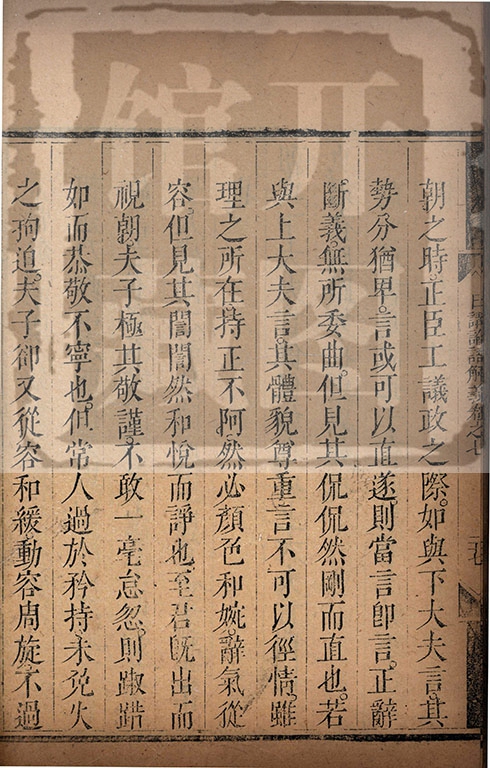 朝之時正臣工議政之際。如與下大夫言其
勢分猶卑。言或可以直遂。則當言卽言。正辭
斷義。無所委曲。但見其侃侃然剛而直也。若
與上大夫言。其體貌尊重。言不可以徑情。雖
理之所在。持正不阿。然必顏色和婉。辭氣從
容。但見其誾誾然和悅而諍也。至君旣出而
視朝。夫子極其敬謹。不敢一毫怠忽。則踧踖
如而恭敬不寧也。但常人過於矜持。未免失
之拘迫。夫子卻又從容和緩。動容周旋。不過